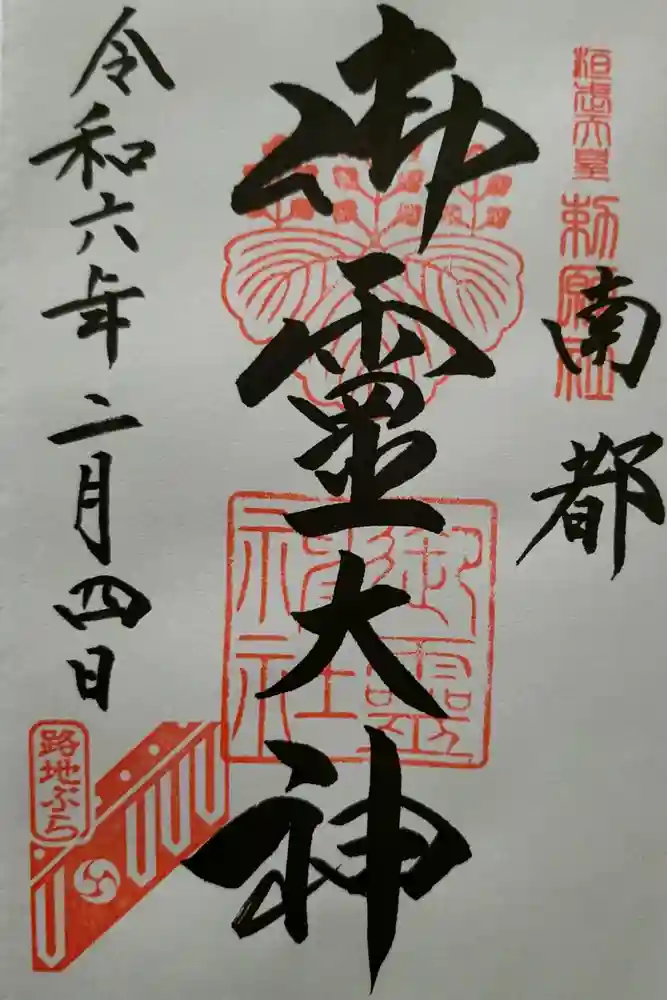 桓武天皇
勅願社
南都
御霊大神
御霊神社
令和六年二月四日
路地ぶら